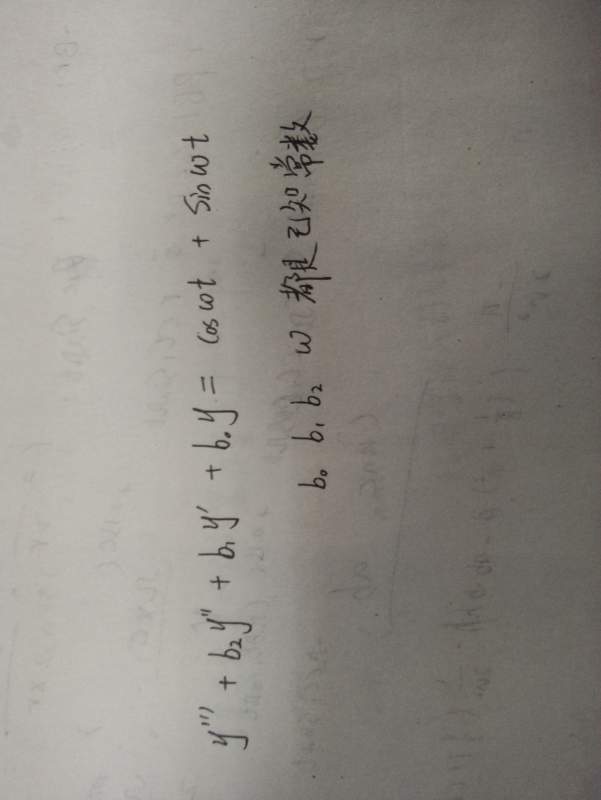 y''' + b₂y'' + b₁y' + b₀y = cos wt + sin wt
b₀ b₁ b₂ w 都是已知常数